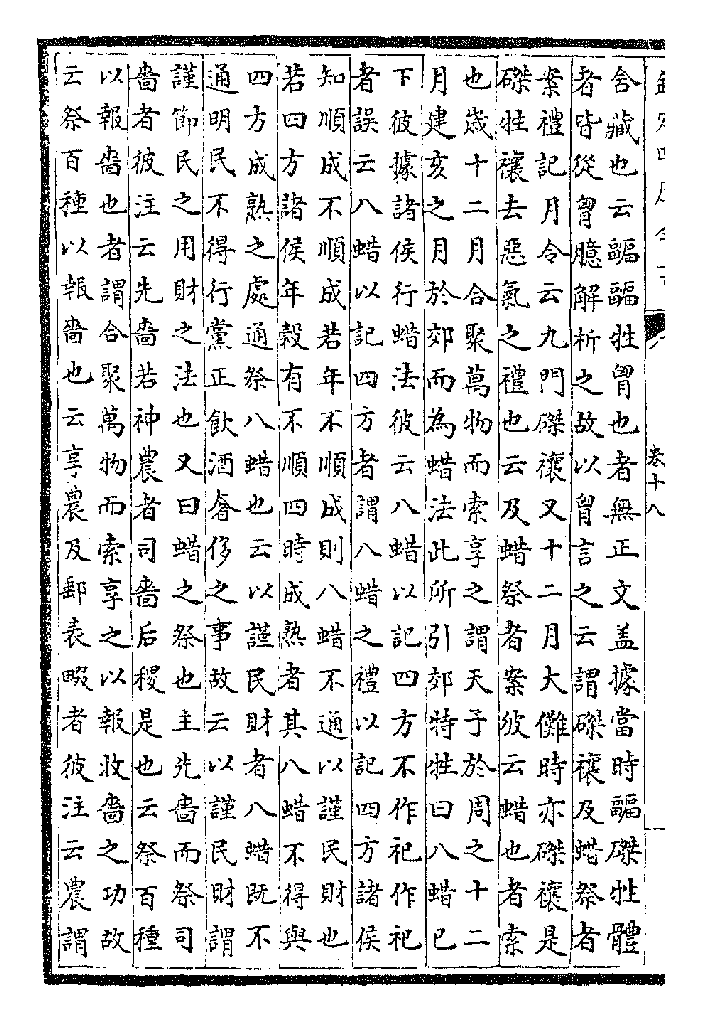 欽定四庫全書
卷十八
舍藏也云疈疈牲胷也者無正文盖據當時疈磔牲體
者皆從胷臆解析之故以胷言之云謂磔禳及蜡祭者
案禮記月令云九門磔禳又十二月大儺時亦磔禳是
磔牲禳去惡氣之禮也云及蜡祭者案彼云蜡也者索
也歲十二月合聚萬物而索享之謂天子於周之十二
月建亥之月於郊而為蜡法此所引郊特牲曰八蜡已
下彼據諸侯行蜡法彼云八蜡以記四方不作祀作祀
者誤云八蜡以記四方者謂八蜡之禮以記四方諸侯
知順成不順成若年不順成則八蜡不通以謹民財也
若四方諸侯年穀有不順四時成熟者其八蜡不得與
四方成熟之處通祭八蜡也云以謹民財者八蜡既不
通明民不得行黨正飲酒奢侈之事故云以謹民財謂
謹節民之用財之法也又曰蜡之祭也主先嗇而祭司
嗇者彼注云先嗇若神農者司嗇后稷是也云祭百種
以報嗇也者謂合聚萬物而索享之以報收嗇之功故
云祭百種以報嗇也云享農及郵表畷者彼注云農謂